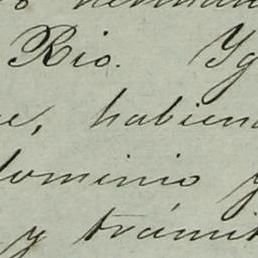 Rio. Yg
habiend
dominio y
y trámit